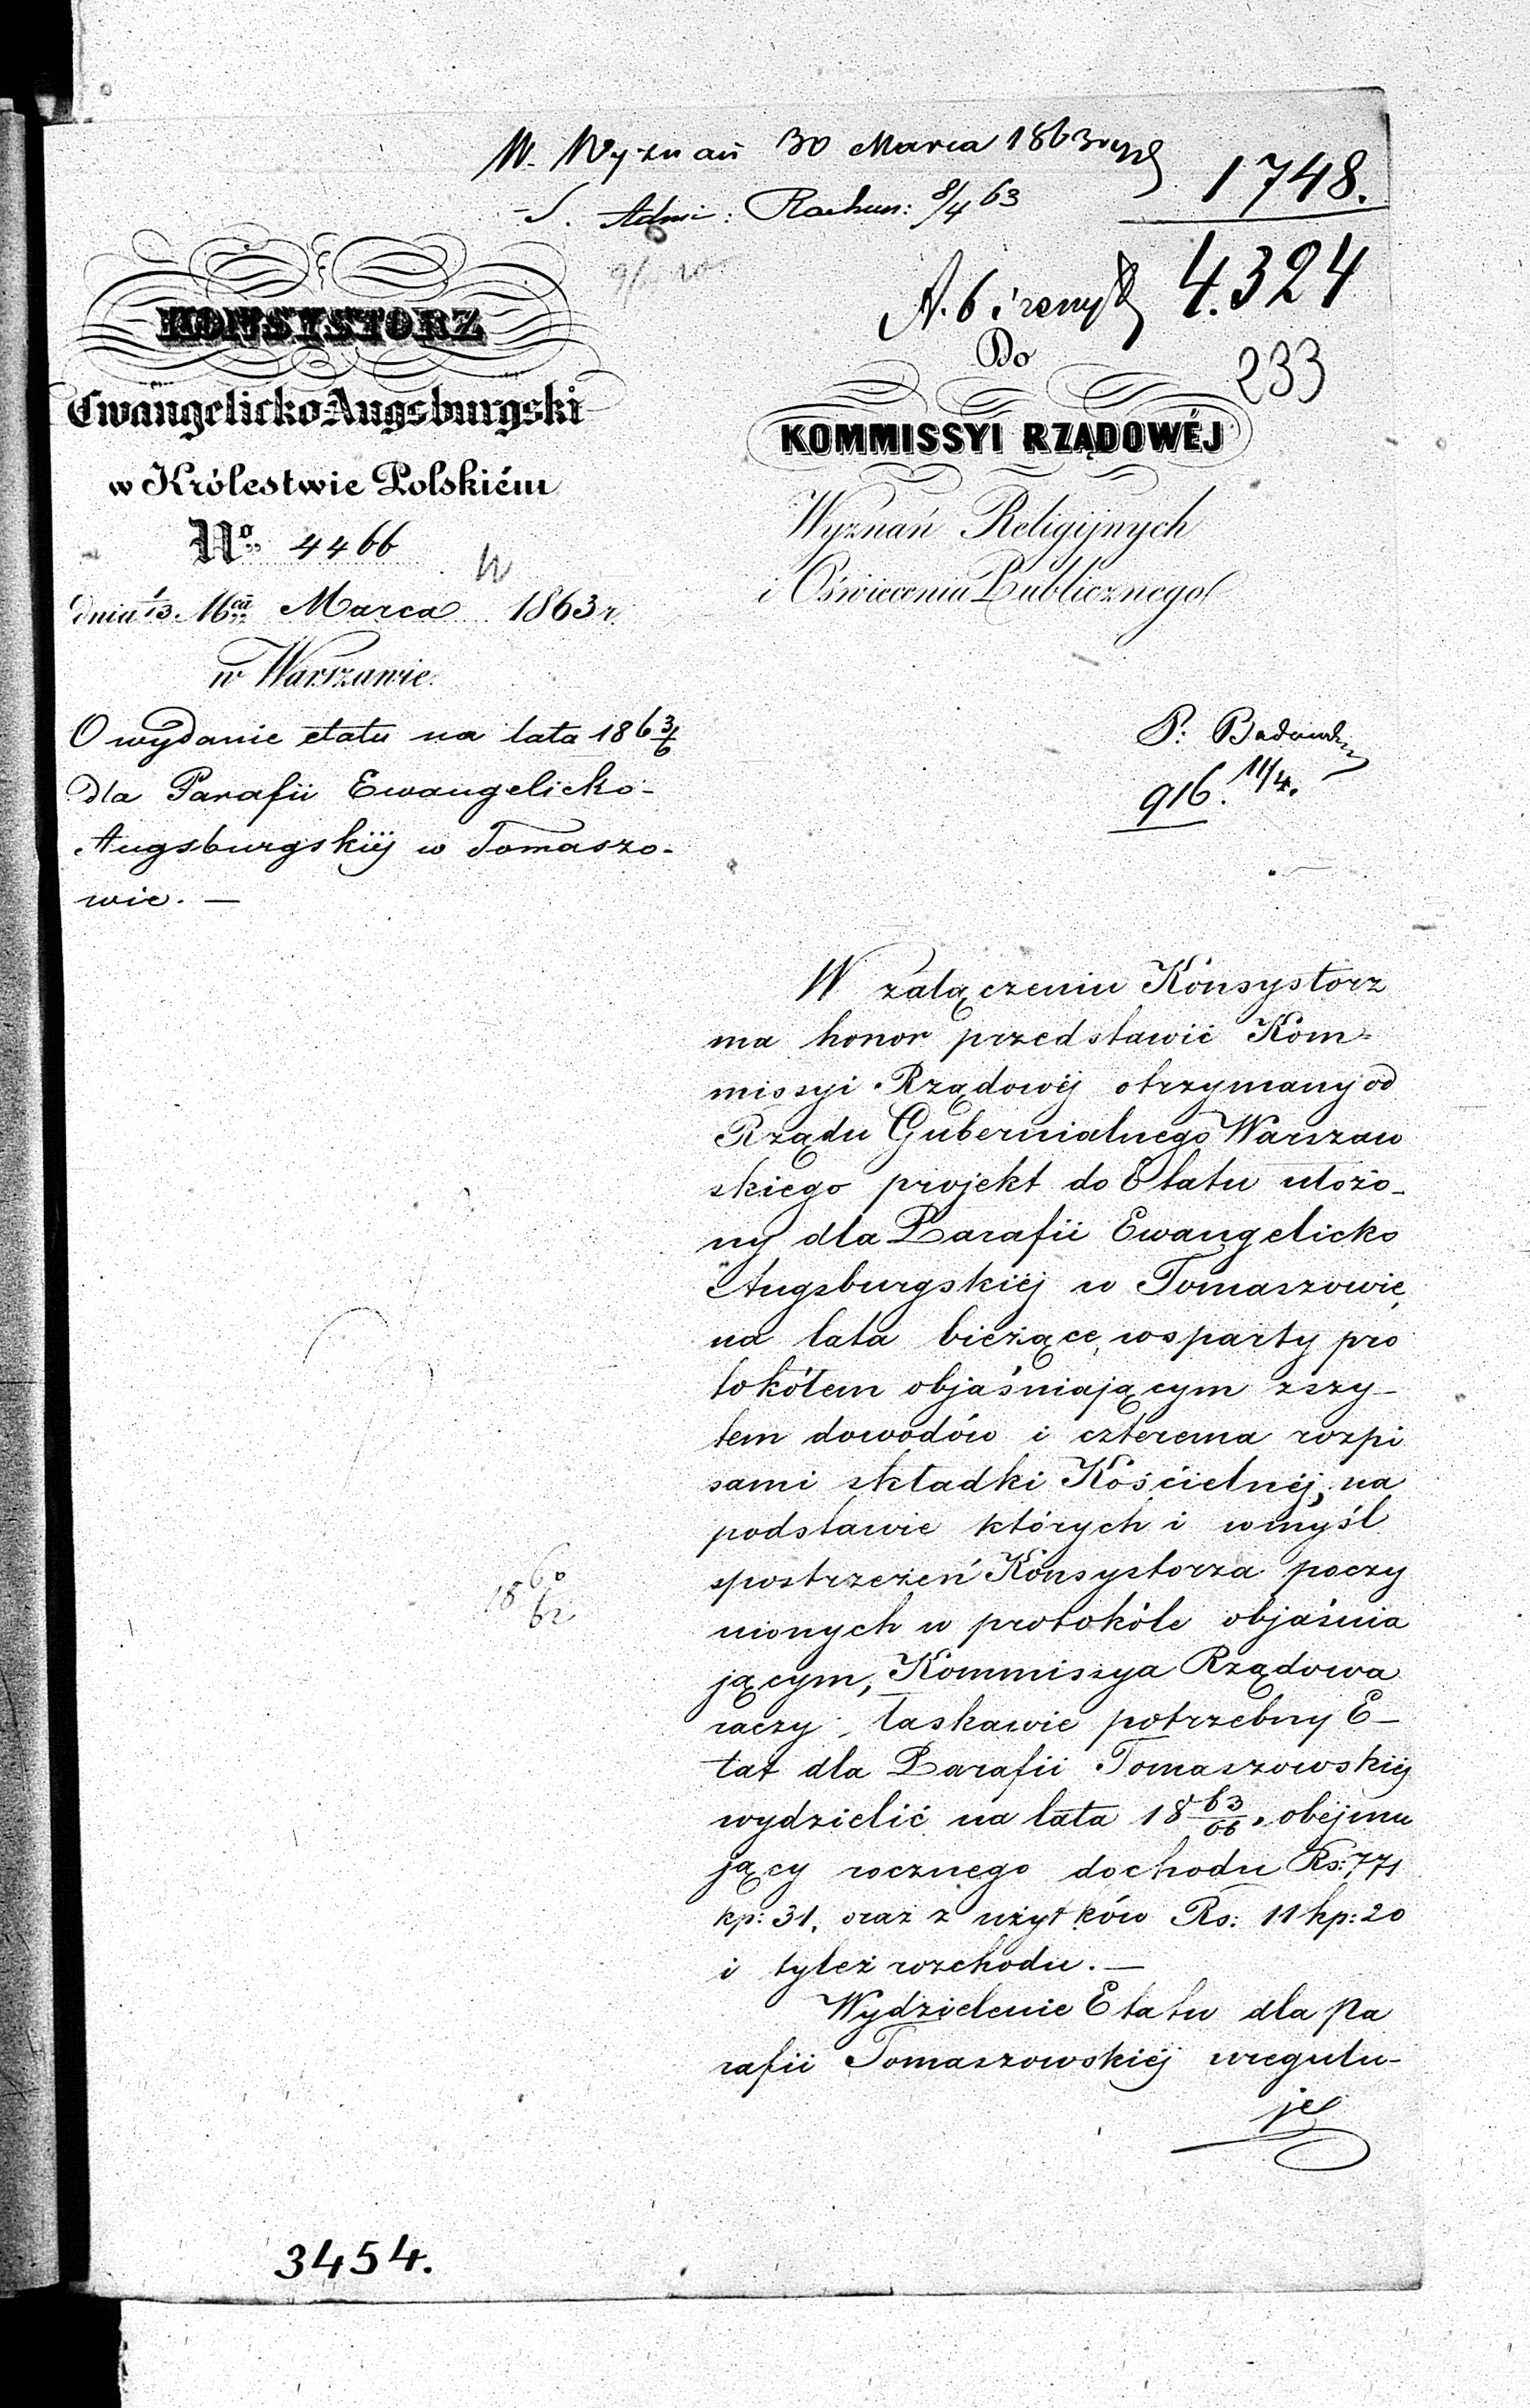 W. Wyznań 30 Marca 1863
1748.
S. Admi: Rachun: 8/4 63
4.324
Do
233
KONSYSTORZ
Ewangelicko-Augsburgski
w Królestwie Polskiém
No 4466
dnia 1/13. 16ca Marca 1863 r.
w Warszawie.
O wydanie etatu na lata 1863/6
dla Parafii Ewangelicko-
Augsburgskiéj w Tomaszo-
wie. —
KOMMISSYI RZĄDOWÉJ
Wyznań Religijnych
i Oświecenia Publicznego
P.
916. 11/4.
W załączeniu Konsystorz
ma honor przedstawić Kom-
missyi Rządowéj otrzymany od
Rządu Gubernialnego Warszaw
skiego projekt do Etatu ułożo-
ny dla Parafii Ewangelicko
Augsburgskiéj w Tomaszowie,
na lata bieżące, wsparty pro
tokółem objaśniającym zszy-
tem dowodów i czterema rozpi
sami składki Kościelnéj, na
podstawie których i wmyśl
spostrzeżeń Konsystorza poczy
nionych w protokóle objaśnia
jącym, Kommissya Rządowa
raczy łaskawie potrzebny E-
tat dla Parafii Tomaszowskiéj
wydzielić na lata 18 63/66. obejmu
jący rocznego dochodu Rs: 771
kp: 31. oraz z użytków Rs: 11 kp: 20
i tyleż rozchodu. —
Wydzielenie Etatu dla Pa
rafii Tomaszowskiéj uregulu-
je
18 60/62
3454.